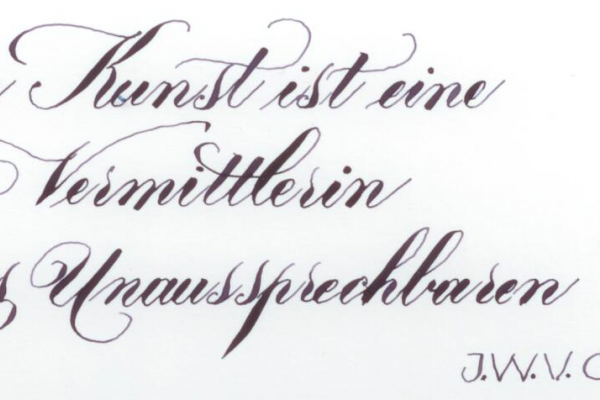 Kunst ist eine
Vermittlerin
Unaussprechbaren
J.W.V.